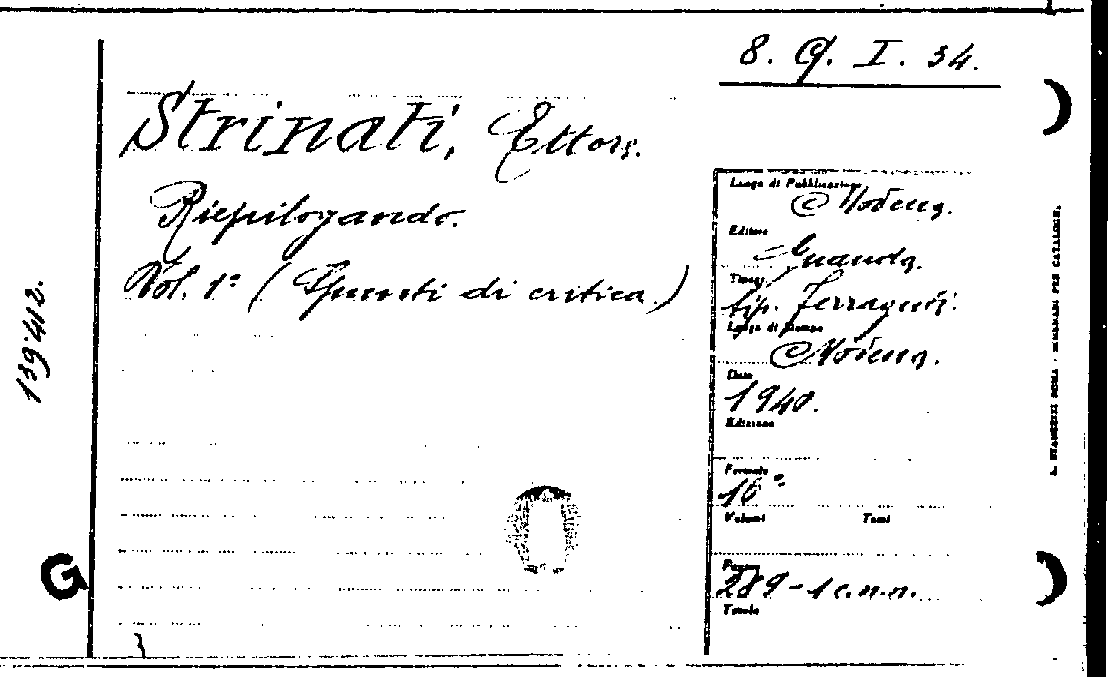 8. Q. I. 34.
Strinati, Ettore.
Riepilogando.
Vol. 1° (Spunti di critica)
139412.
G
Luogo di Pubblicazione
Modena.
Editore
Guanda.
tip. Ferraguti.
Luogo di Stampa
Modena.
Data
1940.
Edizione
Formato
16°
Volumi Tomi
Pagine
289-1 c.n.n.
Tavole